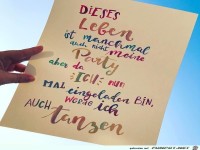 DIESES
Leben
ist manchmal
auch nicht meine
Party
aber da
ICH nun
MAL eingeladen BIN,
WERDE ich
AUCH tanzen